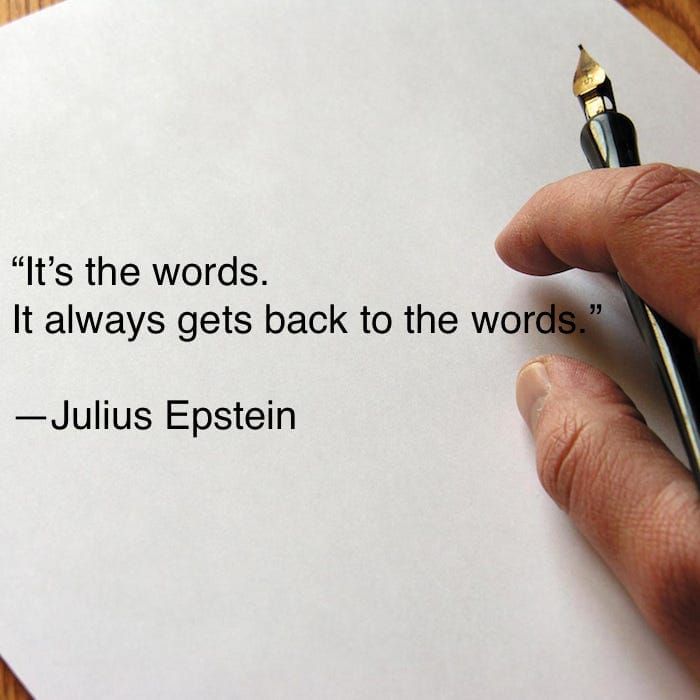 “It’s the words.
It always gets back to the words.”
—Julius Epstein